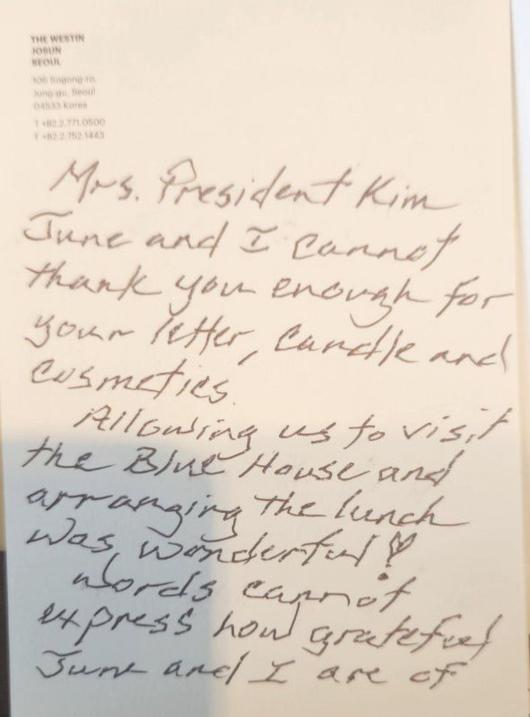 THE WESTIN
JOSUN
SEOUL
106 Sogong-ro,
Jung-gu, Seoul
04533 Korea
T +82.2.771.0500
F +82.2.752.1443
Mrs. President Kim
June and I cannot
thank you enough for
your letter, candle and
cosmetics.
Allowing us to visit
the Blue House and
arranging the lunch
was wonderful!
Words cannot
express how grateful
June and I are of